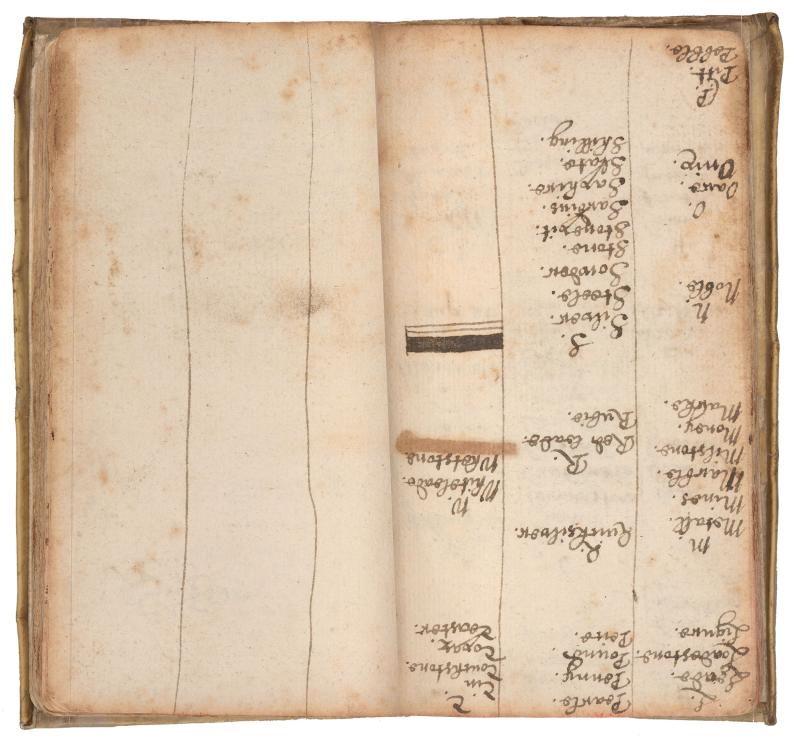 L.
Leade.
Loadestone.
Ligure.
M.
Metall.
Mines.
Marble.
Milstone.
Money.
Marke.
N.
Noble.
O.
Oare.
Onix.
P.
Pitt.
Pebble.
Pearle.
Penny.
Pound.
Q.
Quicksilver.
R.
Red leade.
Rubie.
S.
Silver.
Steele.
Sowder.
Stone.
Stonepit.
Sardius.
Saphire.
Slate.
Shilling.
T.
Tin.
Touchstone.
Topaz.
Teaster.
W.
Whiteleade.
Whetstone.